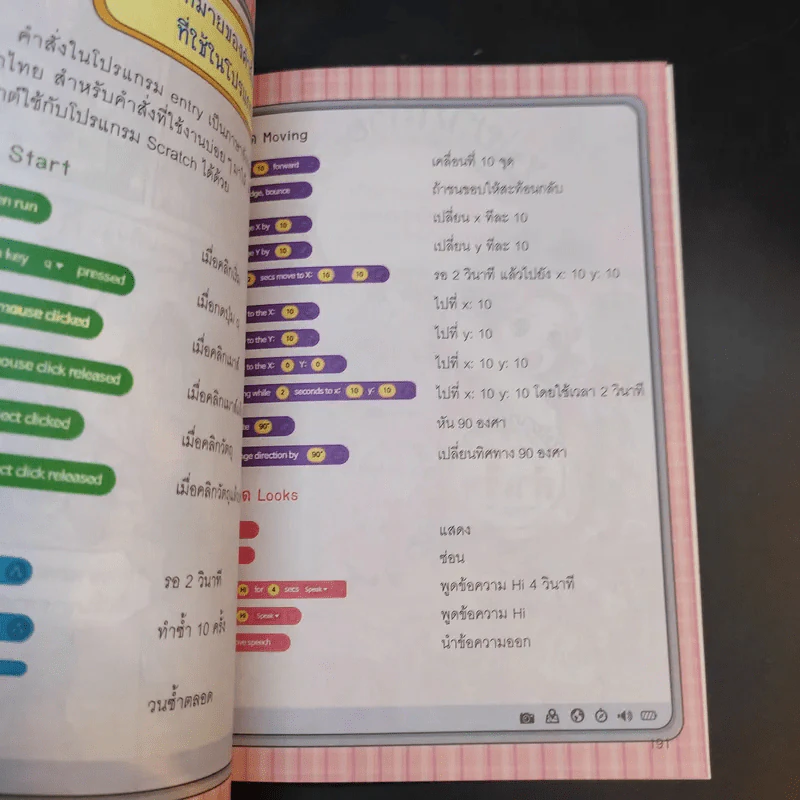 ที่ใช้ในโปรแกรม
คำสั่งในโปรแกรม entry เป็นภาษา
ไทย สำหรับคำสั่งที่ใช้งานบ่อย ๆ
ใช้กับโปรแกรม Scratch ได้ด้วย
Start
run
key q pressed
mouse clicked
เมื่อคลิกเมาส์
click released
clicked
เมื่อคลิกวัตถุ
click released
รอ 2 วินาที
ทำซ้ำ 10 ครั้ง
วนซ้ำตลอด
Moving
10 forward
เคลื่อนที่ 10 ชุด
bounce
ถ้าชนขอบให้สะท้อนกลับ
X by 10
เปลี่ยน x ทีละ 10
Y by 10
เปลี่ยน y ทีละ 10
secs move to X: 10 10
รอ 2 วินาที แล้วไปยัง x: 10 y: 10
to the X: 10
ไปที่ x: 10
to the Y: 10
ไปที่ y: 10
to the X: 0 Y: 0
ไปที่ x: 10 y: 10
while 2 seconds to x: 10 y: 10
ไปที่ x: 10 y: 10 โดยใช้เวลา 2 วินาที
90°
หัน 90 องศา
direction by 90°
เปลี่ยนทิศทาง 90 องศา
Looks
แสดง
ซ่อน
Hi for 4 secs Speak
พูดข้อความ Hi 4 วินาที
Hi Speak
พูดข้อความ Hi
speech
นำข้อความออก
191